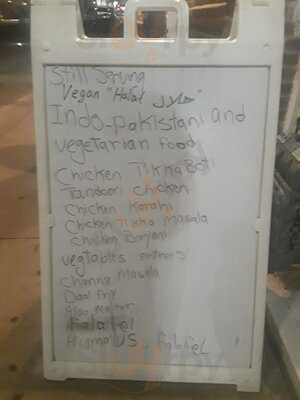 Still Serving
Vegan "Halal حلال"
Indo-Pakistani and
vegetarian food
Chicken Tikka Boti
Tandoori Chicken
Chicken Karahi
Chicken Tikka Masala
Chicken Biryani
vegtables
Channa Masala
Daal Fry
Aloo Mutter
falafel